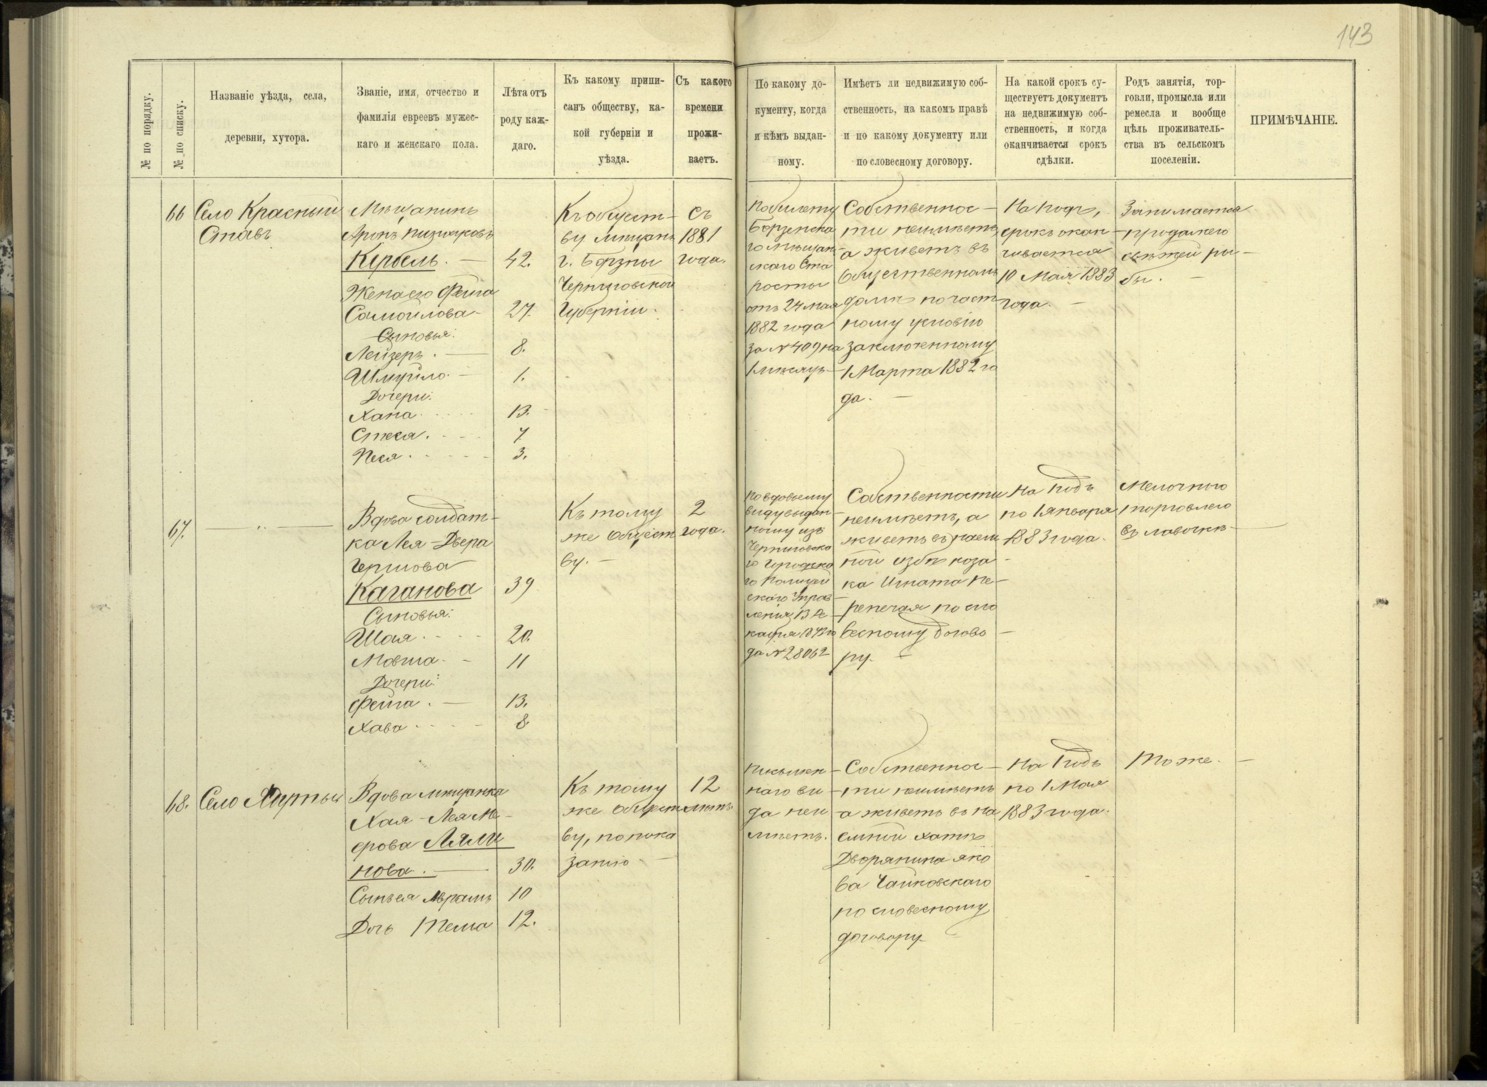 143
№ по порядку.
№ по списку.
Названіе уѣзда, села,
деревни, хутора.
Званіе, имя, отчество и
фамилія евреевъ мужес-
каго и женскаго пола.
Лѣта отъ
роду каж-
даго.
Къ какому припи-
санъ обществу, ка-
кой губерніи и
уѣзда.
Съ какого
времени
прожи-
ваетъ.
По какому до-
кументу, когда
и кѣмъ выдан-
ному.
Имѣетъ ли недвижимую соб-
ственность, на какомъ правѣ
и по какому документу или
по словесному договору.
На какой срокъ су-
ществуетъ документъ
на недвижимую соб-
ственность, и когда
оканчивается срокъ
сдѣлки.
Родъ занятія, тор-
говли, промысла или
ремесла и вообще
цѣль проживатель-
ства въ сельскомъ
поселеніи.
ПРИМѢЧАНІЕ.
66
Село Красный
Ставъ
Мѣщанинъ
Аронъ
Кисель. 42.
Жена его Фейга
Самойлова 27.
Сыновья:
Лейзеръ. 8.
Шмуйло. 1.
Дочери:
Хана 13.
Стися. 7
Песя. 3.
Къ общест-
ву мѣщанъ
г. Борзны
Черниговской
Губерніи.
Съ
1881
года.
По билету
Борзенска-
го Мѣщан-
скаго Ста-
росты
отъ 24 мая
1882 года
за № 409 на
1 мѣсяцъ
Собственнос-
ти неимѣетъ,
а живетъ въ
Общественномъ
домѣ по част-
ному условію
заключенному
1 Марта 1882 го-
да.
На годъ,
срокъ окан-
чивается
10 Мая 1883
года.
Занимается
продажею
свѣжей ры-
бы.
67.
Вдова солдат-
ка Лея-Двера
Гершова
Каганова 39
Сыновья:
Шая 20.
Мовша 11
Дочери:
Фейга. 13.
Хава 8.
Къ тому
же общест-
ву.
2
года.
По вдовьему
виду выдан-
ному изъ
Черниговска-
го Городска-
го Полицей-
скаго Управ-
ленія, 13 Де-
кабря
да №28062
Собственности
неимѣетъ, а
живетъ въ наем-
ной избѣ коза-
ка Игната Пе-
репечая по сло-
весному догово-
ру.
На годъ
по 1 января
1883 года.
Мелочною
торговлею
въ лавочкѣ
68.
Село
Вдова мѣщанка
Хая-Лея Ме-
ерова Ляли-
нова. 30.
Сынъ ея Абрамъ 10
Дочь Тема 12.
Къ тому
же общест-
ву, по пока-
занію
12
лѣтъ
Письмен-
наго ви-
да неи-
мѣетъ.
Собственнос-
ти неимѣетъ
а живетъ въ на-
емной хатѣ
Дворянина Яко-
ва Чайковскаго
по словесному
договору
На годъ
по 1 Мая
1883 года.
Тоже.